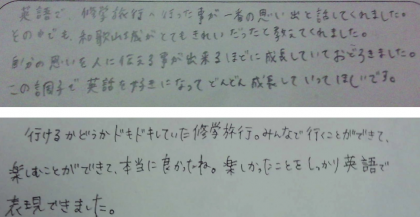 英語で、修学旅行へ行った事が一番の思い出と話してくれました。
その中でも、和歌山城がとてもきれいだったと教えてくれました。
自分の思いを人に伝える事が出来るほどに成長していておどろきました。
この調子で英語を好きになってどんどん成長していってほしいです。
行けるかどうかドキドキしていた修学旅行。みんなで行くことができて、
楽しむことができて、本当に良かったね。楽しかったことをしっかり英語で
表現できました。